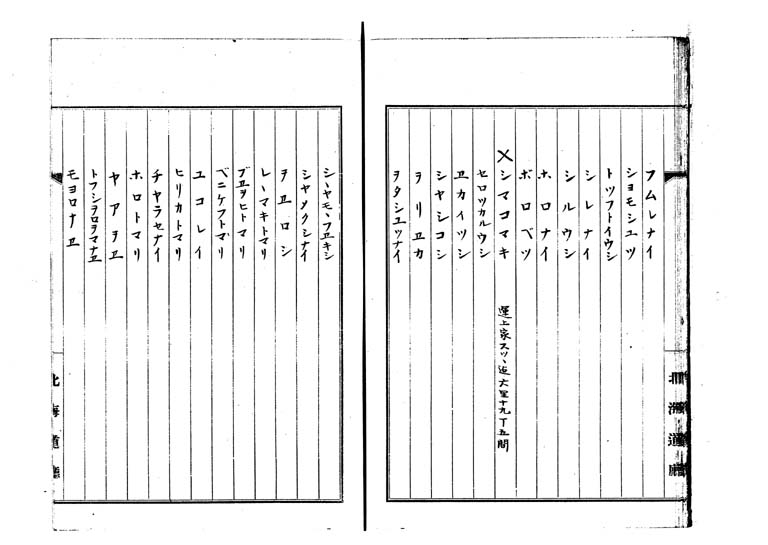 フムレナイ
ショモシユツ
トツフトイウシ
シレナイ
シルウシ
ホロナイ
ボロベツ
〤シマコマキ 運上家スツヽ迄六里十九丁五間
セロツカルウシ
ヱカイツシ
シヤシコシ
ヲリヱカ
ヲタシユツナイ
北海道廳
シヽヤモヽフヱキシ
シヤメクシナイ
ヲヱロシ
レヽマキトマリ
ブヱヲヒトマリ
ベニケフトマリ
ユコレイ
ヒリカトマリ
チヤラセナイ
ホロトマリ
ヤアヲヱ
トフシヲロヲマナヱ
モヨロナヱ
北海道廳